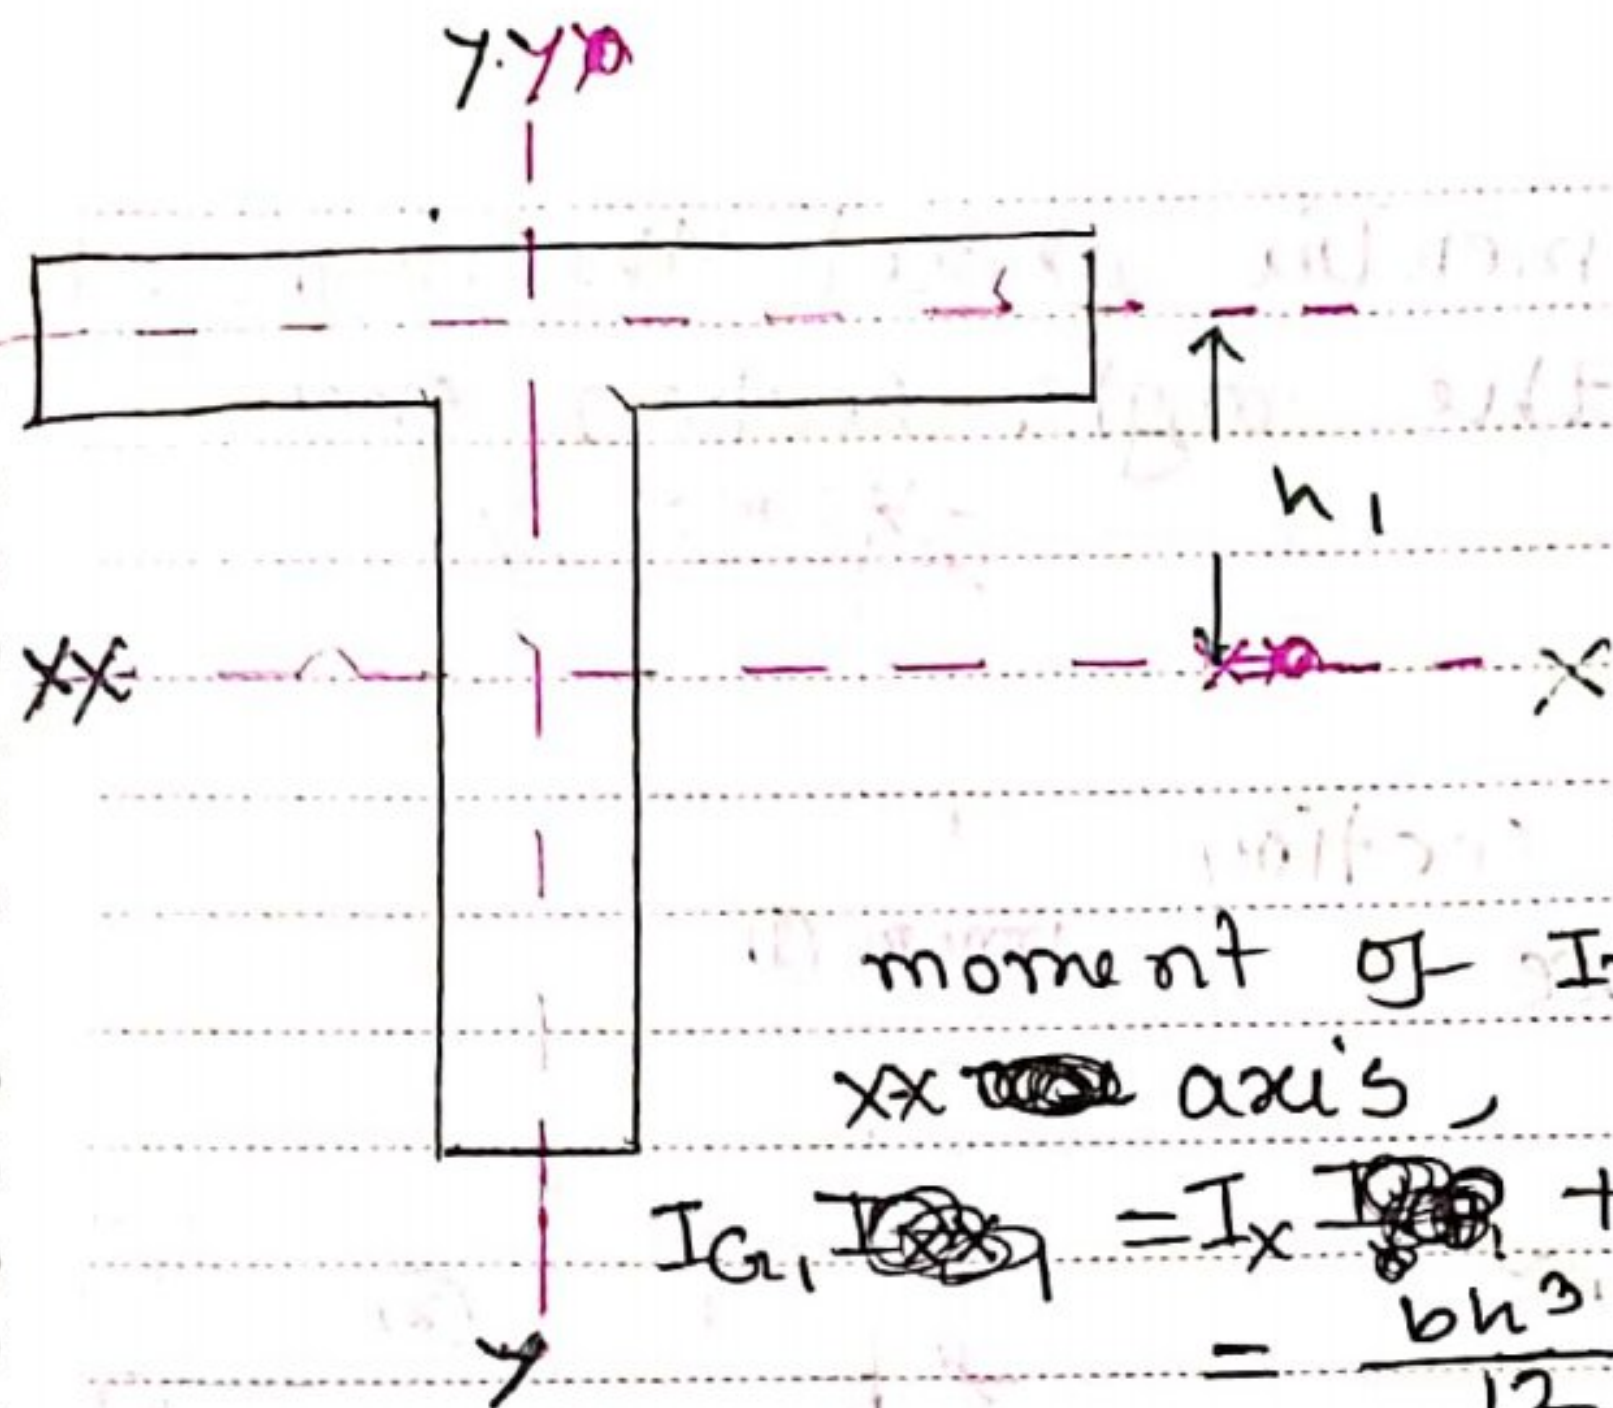 y y
h1
XX X
moment of
xx axis,
IG1 = Ix +
= bh3
12
y